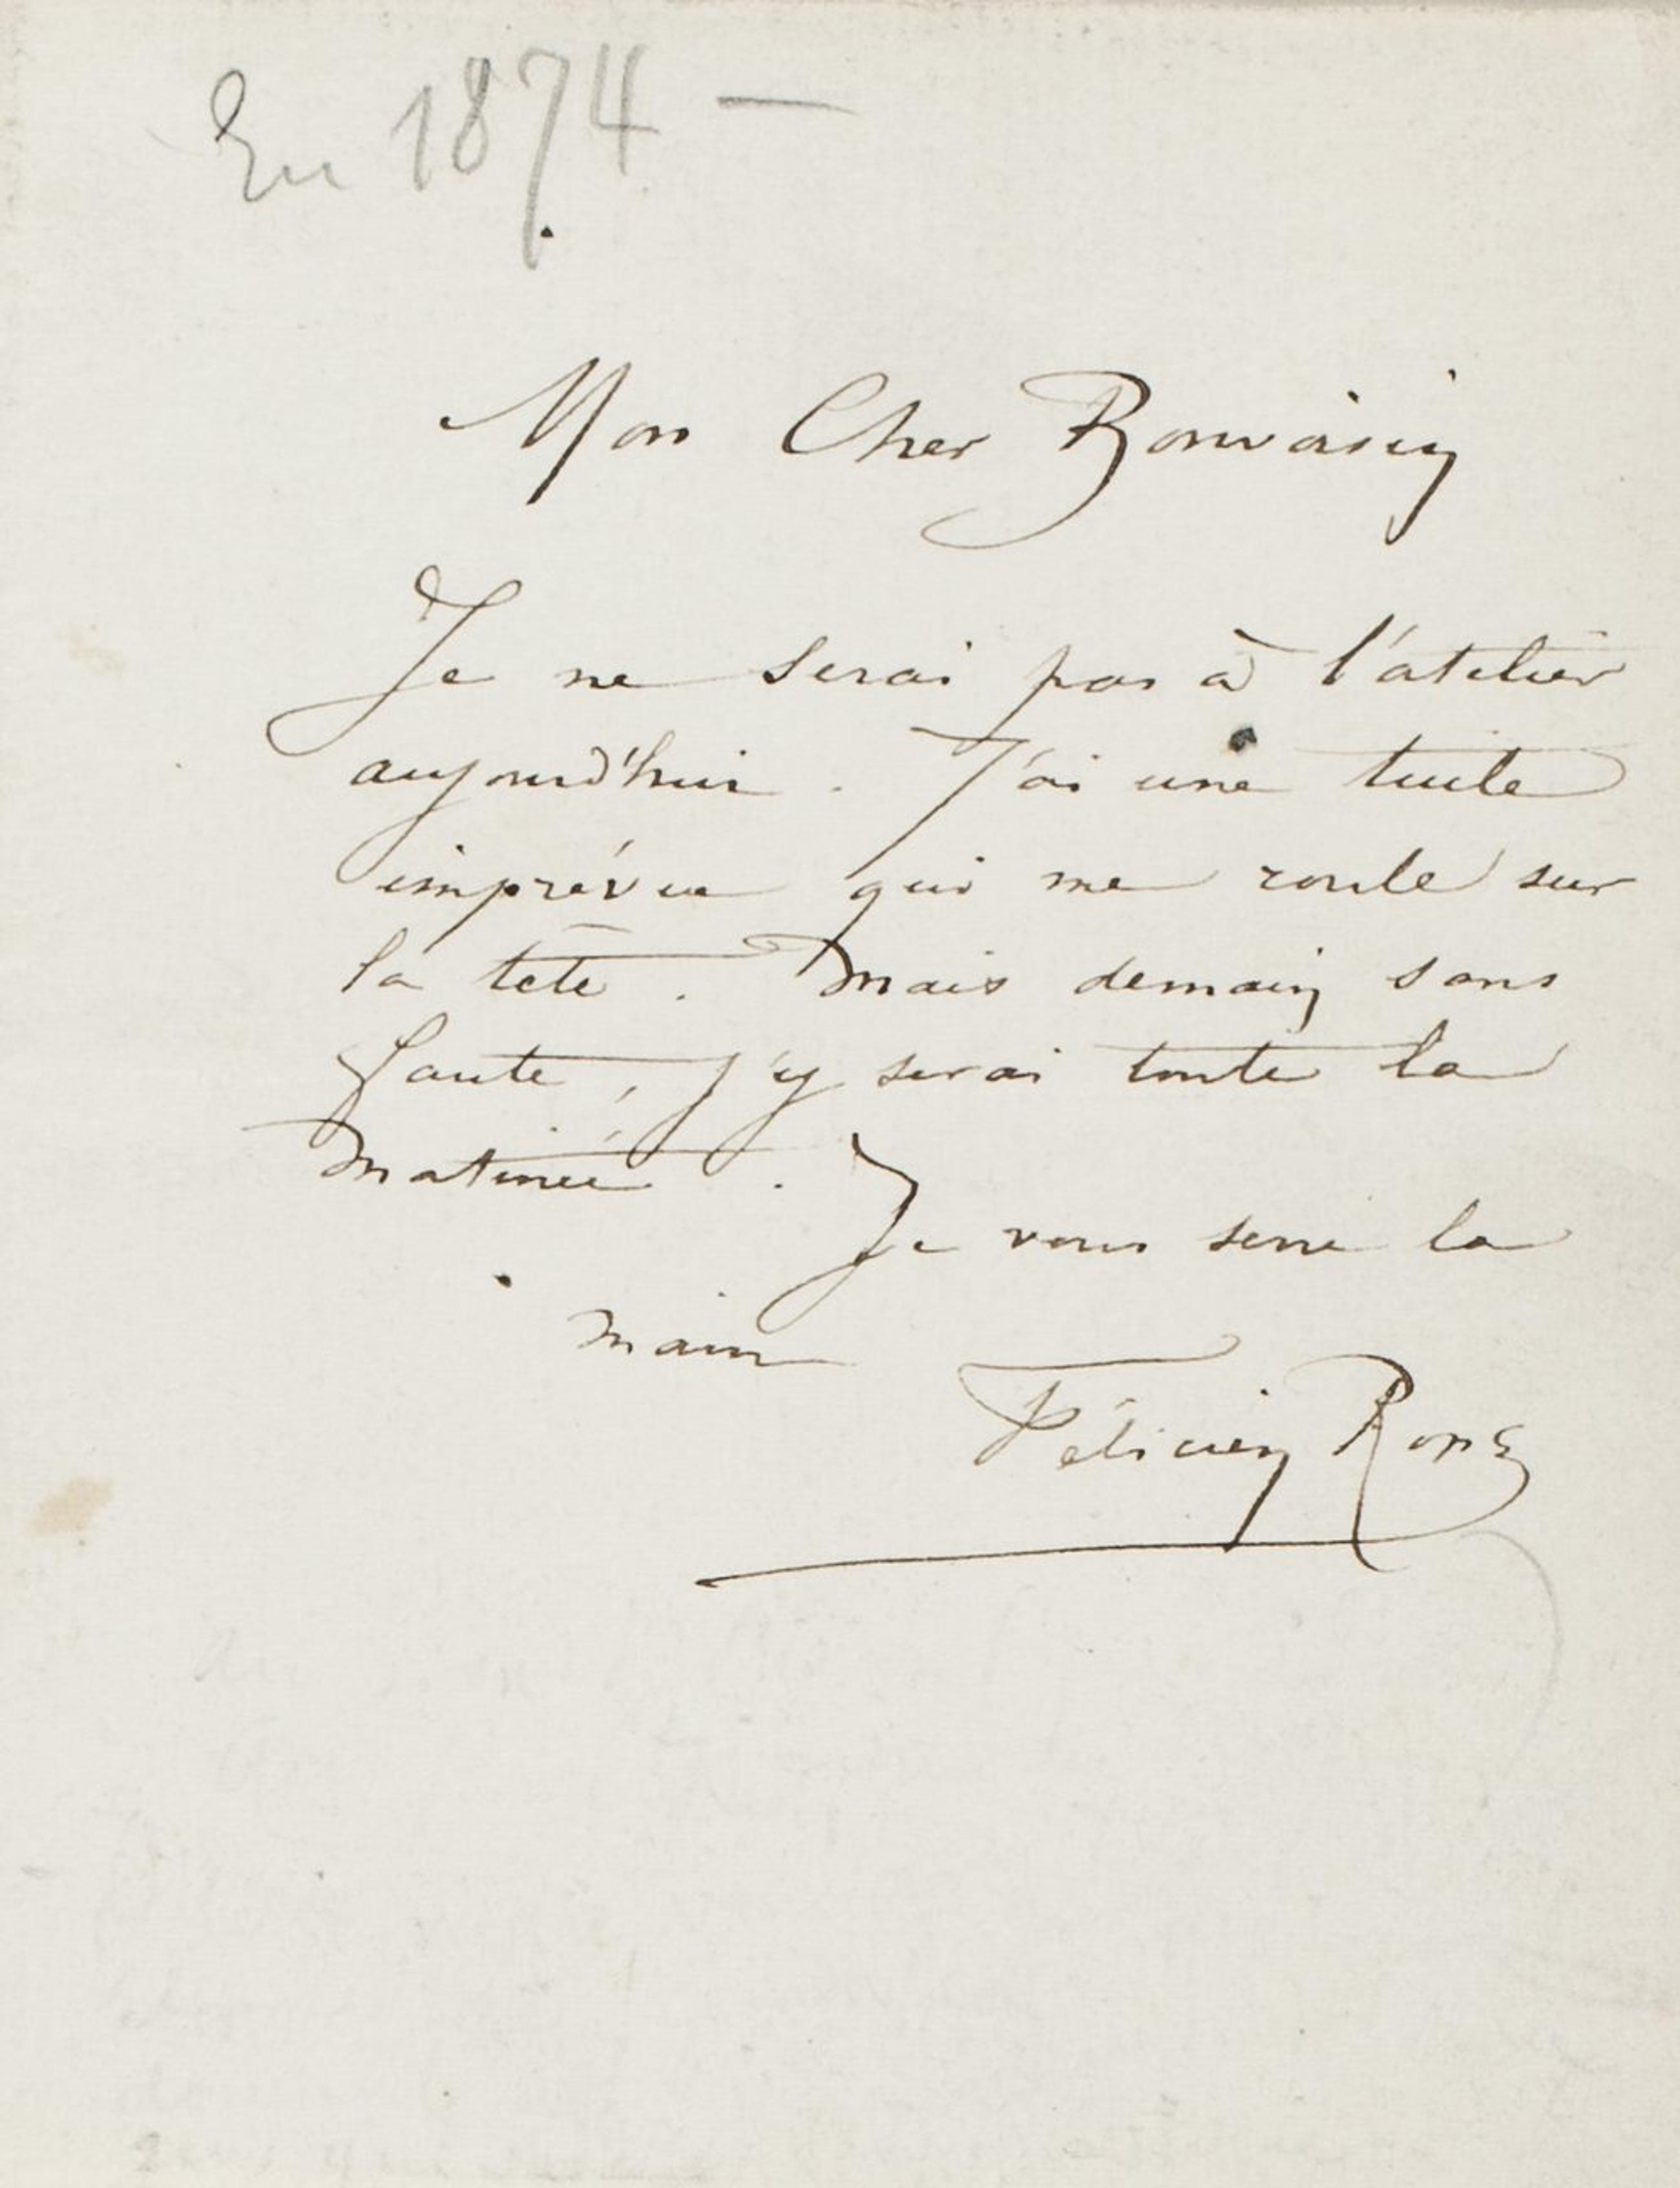 En 1874 —
Mon Cher Bonvoisin
Je ne serai pas à l'atelier
aujourd'hui. J'ai une tuile
imprévue qui me roule sur
la tête. Mais demain sans
faute, j'y serai toute la
matinée.
Je vous serre la
main
Félicien Rops